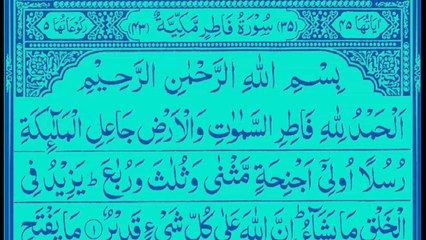 اٰیَاتُهَا ٤٥ (٣٥) سُوْرَةُ فَاطِرٍ مَّكِّيَّةٌ (٤٣) رُكُوْعَاتُهَا ٥
بِسْمِ اللهِ الرَّحْمٰنِ الرَّحِيْمِ
اَلْحَمْدُ لِلّٰهِ فَاطِرِ السَّمٰوٰتِ وَالْاَرْضِ جَاعِلِ الْمَلٰٓئِكَةِ
رُسُلًا اُولِیْۤ اَجْنِحَةٍ مَّثْنٰی وَثُلٰثَ وَرُبٰعَ ؕ یَزِیْدُ فِی
الْخَلْقِ مَا یَشَآءُ ؕ اِنَّ اللهَ عَلٰی كُلِّ شَیْءٍ قَدِیْرٌ ۝١ مَا یَفْتَحِ